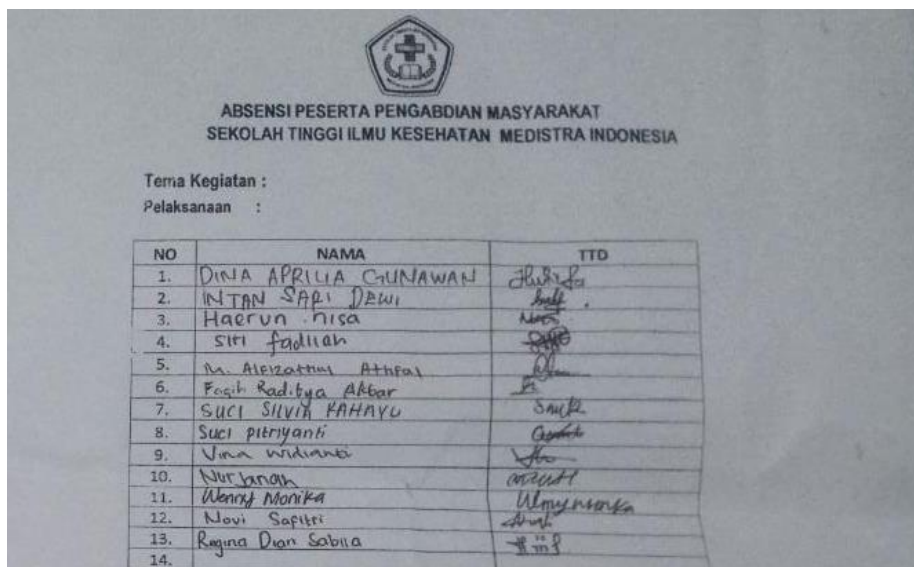 ABSENSI PESERTA PENGABDIAN MASYARAKAT
SEKOLAH TINGGI ILMU KESEHATAN MEDISTRA INDONESIA
Tema Kegiatan :
Pelaksanaan :
NO NAMA TTD
1. DINA APRILIA GUNAWAN
2. INTAN SARI DEWI
3. Haerun nisa
4. Siti fadilah
5. M. Athfal
6. Raditya Akbar
7. SUCI SILVIA RAHAYU
8. Suci pitriyanti
9. Vina widianti
10. Nurjanah
11. Wenny Monika
12. Novi Safitri
13. Regina Dian Sabila
14.